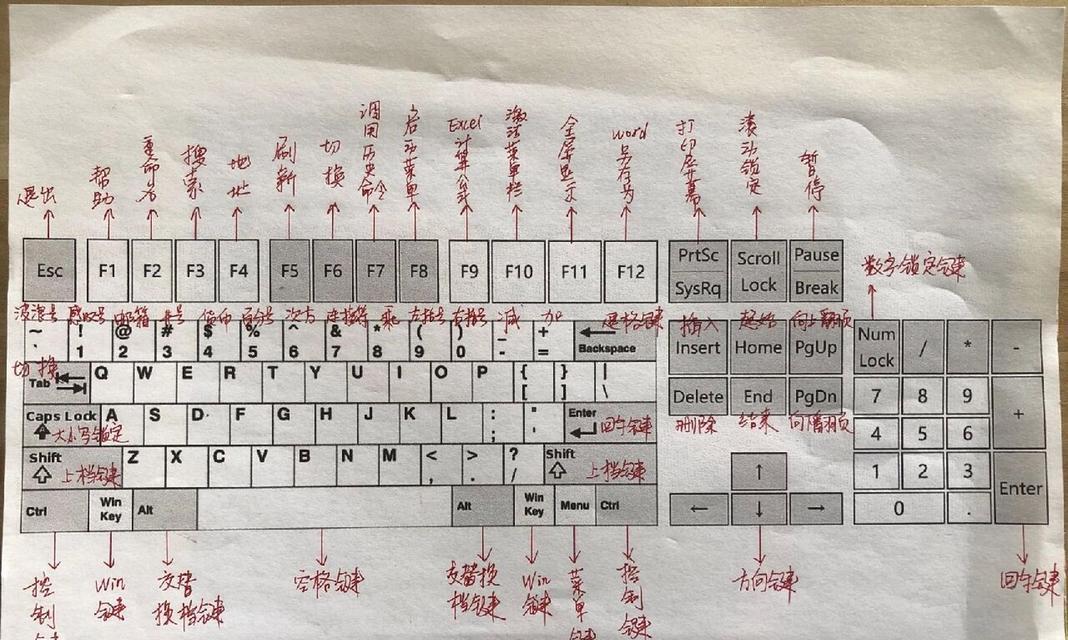 退出 帮助 重命名 搜索 地址 刷新 切换 调用历史命令 启动菜单 Excel计算公式 激活菜单栏 全屏显示 word另存为 打印屏幕 滚动锁定 暂停
Esc F1 F2 F3 F4 F5 F6 F7 F8 F9 F10 F11 F12 PrtSc SysRq Scroll Lock Pause Break
数字锁定键
波浪号 感叹号 邮箱 井号 货币 百分号 次方 连接符 乘 左括号 右括号 减 加 退格键 插入 起始 向上翻页
~ ` ! 1 @ 2 # 3 $ 4 % 5 ^ 6 & 7 * 8 ( 9 ) 0 _ - + = Backspace Insert Home PgUp Num Lock / * -
切换
Tab Q W E R T Y U I O P { [ } ] | \ Delete End PgDn 7 8 9 +
删除 结束
Caps Lock 大小写锁定 A S D F G H J K L : ; " ' Enter 回车键 4 5 6
Shift 上档键 Z X C V B N M < , > . ? / Shift 上档键 ↑ 1 2 3 Enter
Ctrl Win Key Alt Alt Win Key Menu Ctrl ← ↓ → 0 .
控制键 Win键 交替换档键 空格键 交替换档键 Win键 菜单键 控制键 方向键 回车键